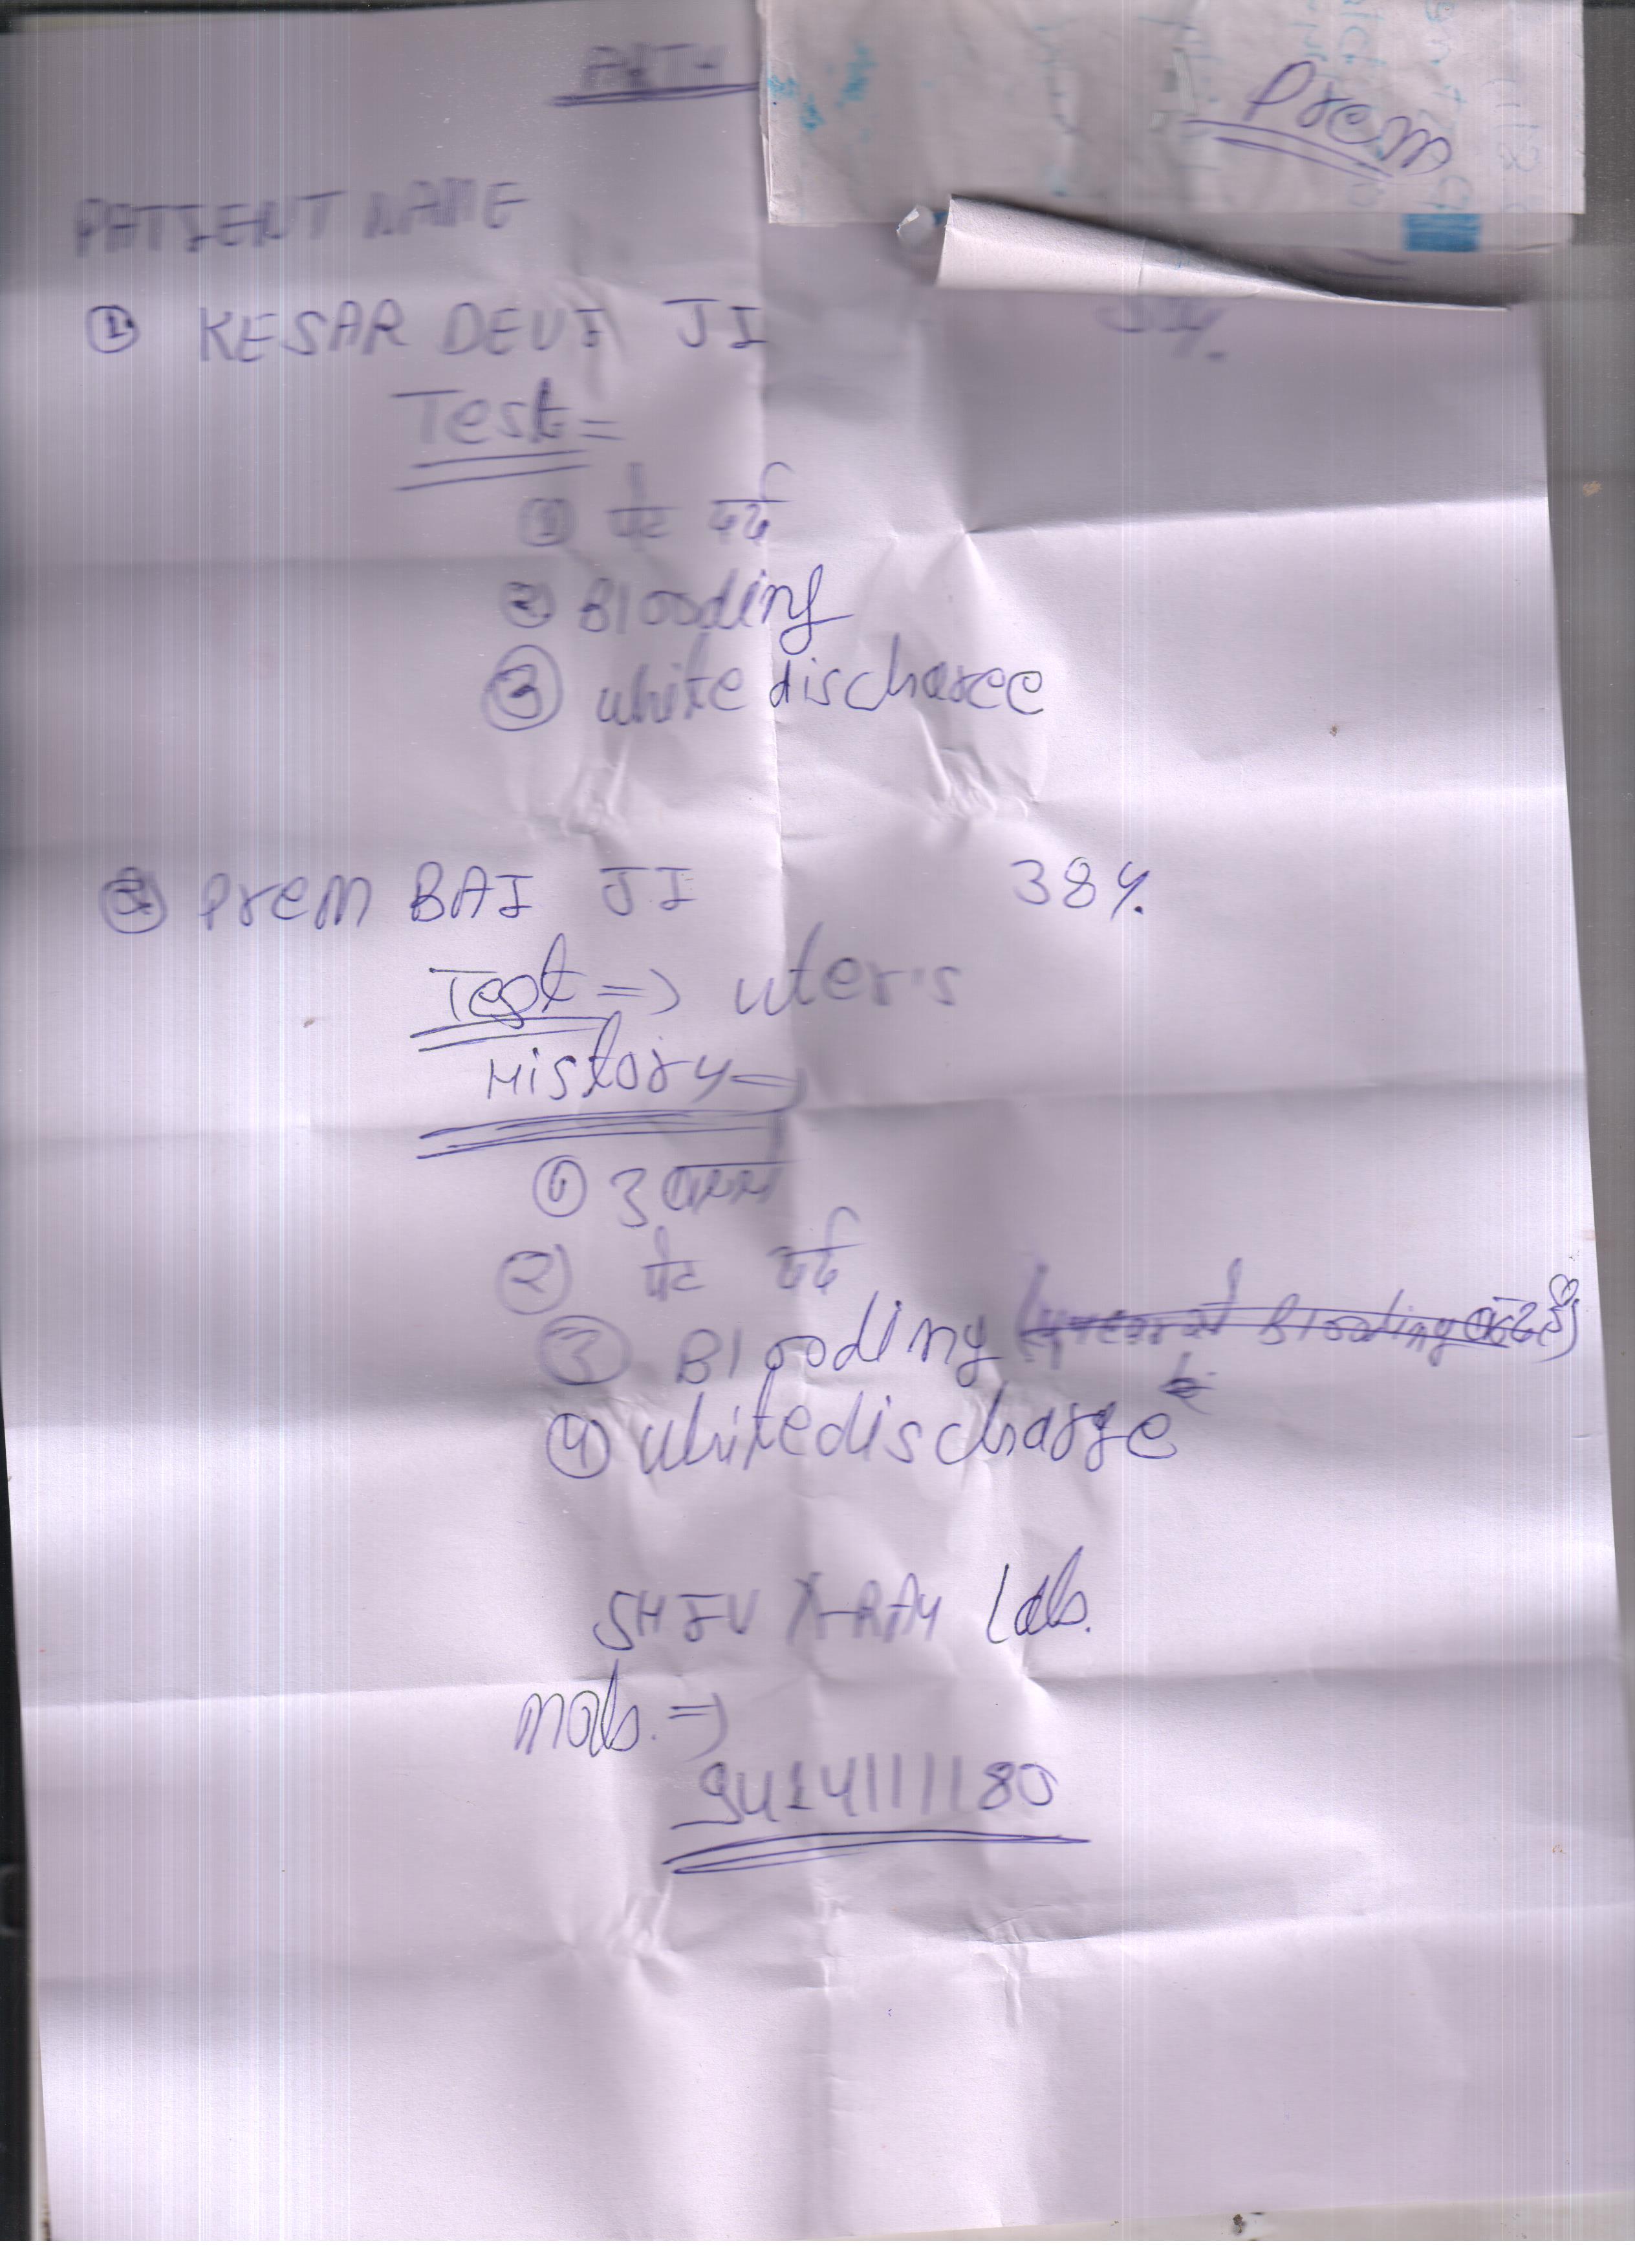 PATH
Prem
PATIENT NAME
① KESAR DEVI JI
Test =
① पेट दर्द
② Blooding
③ white discharee
② Prem BAI JI 38 Y.
Test => uter's
History =>
① 3
② पेट दर्द
③ Blooding
④ white discharge
SHIV X-RAY Lab.
Mob. =>
9414111180